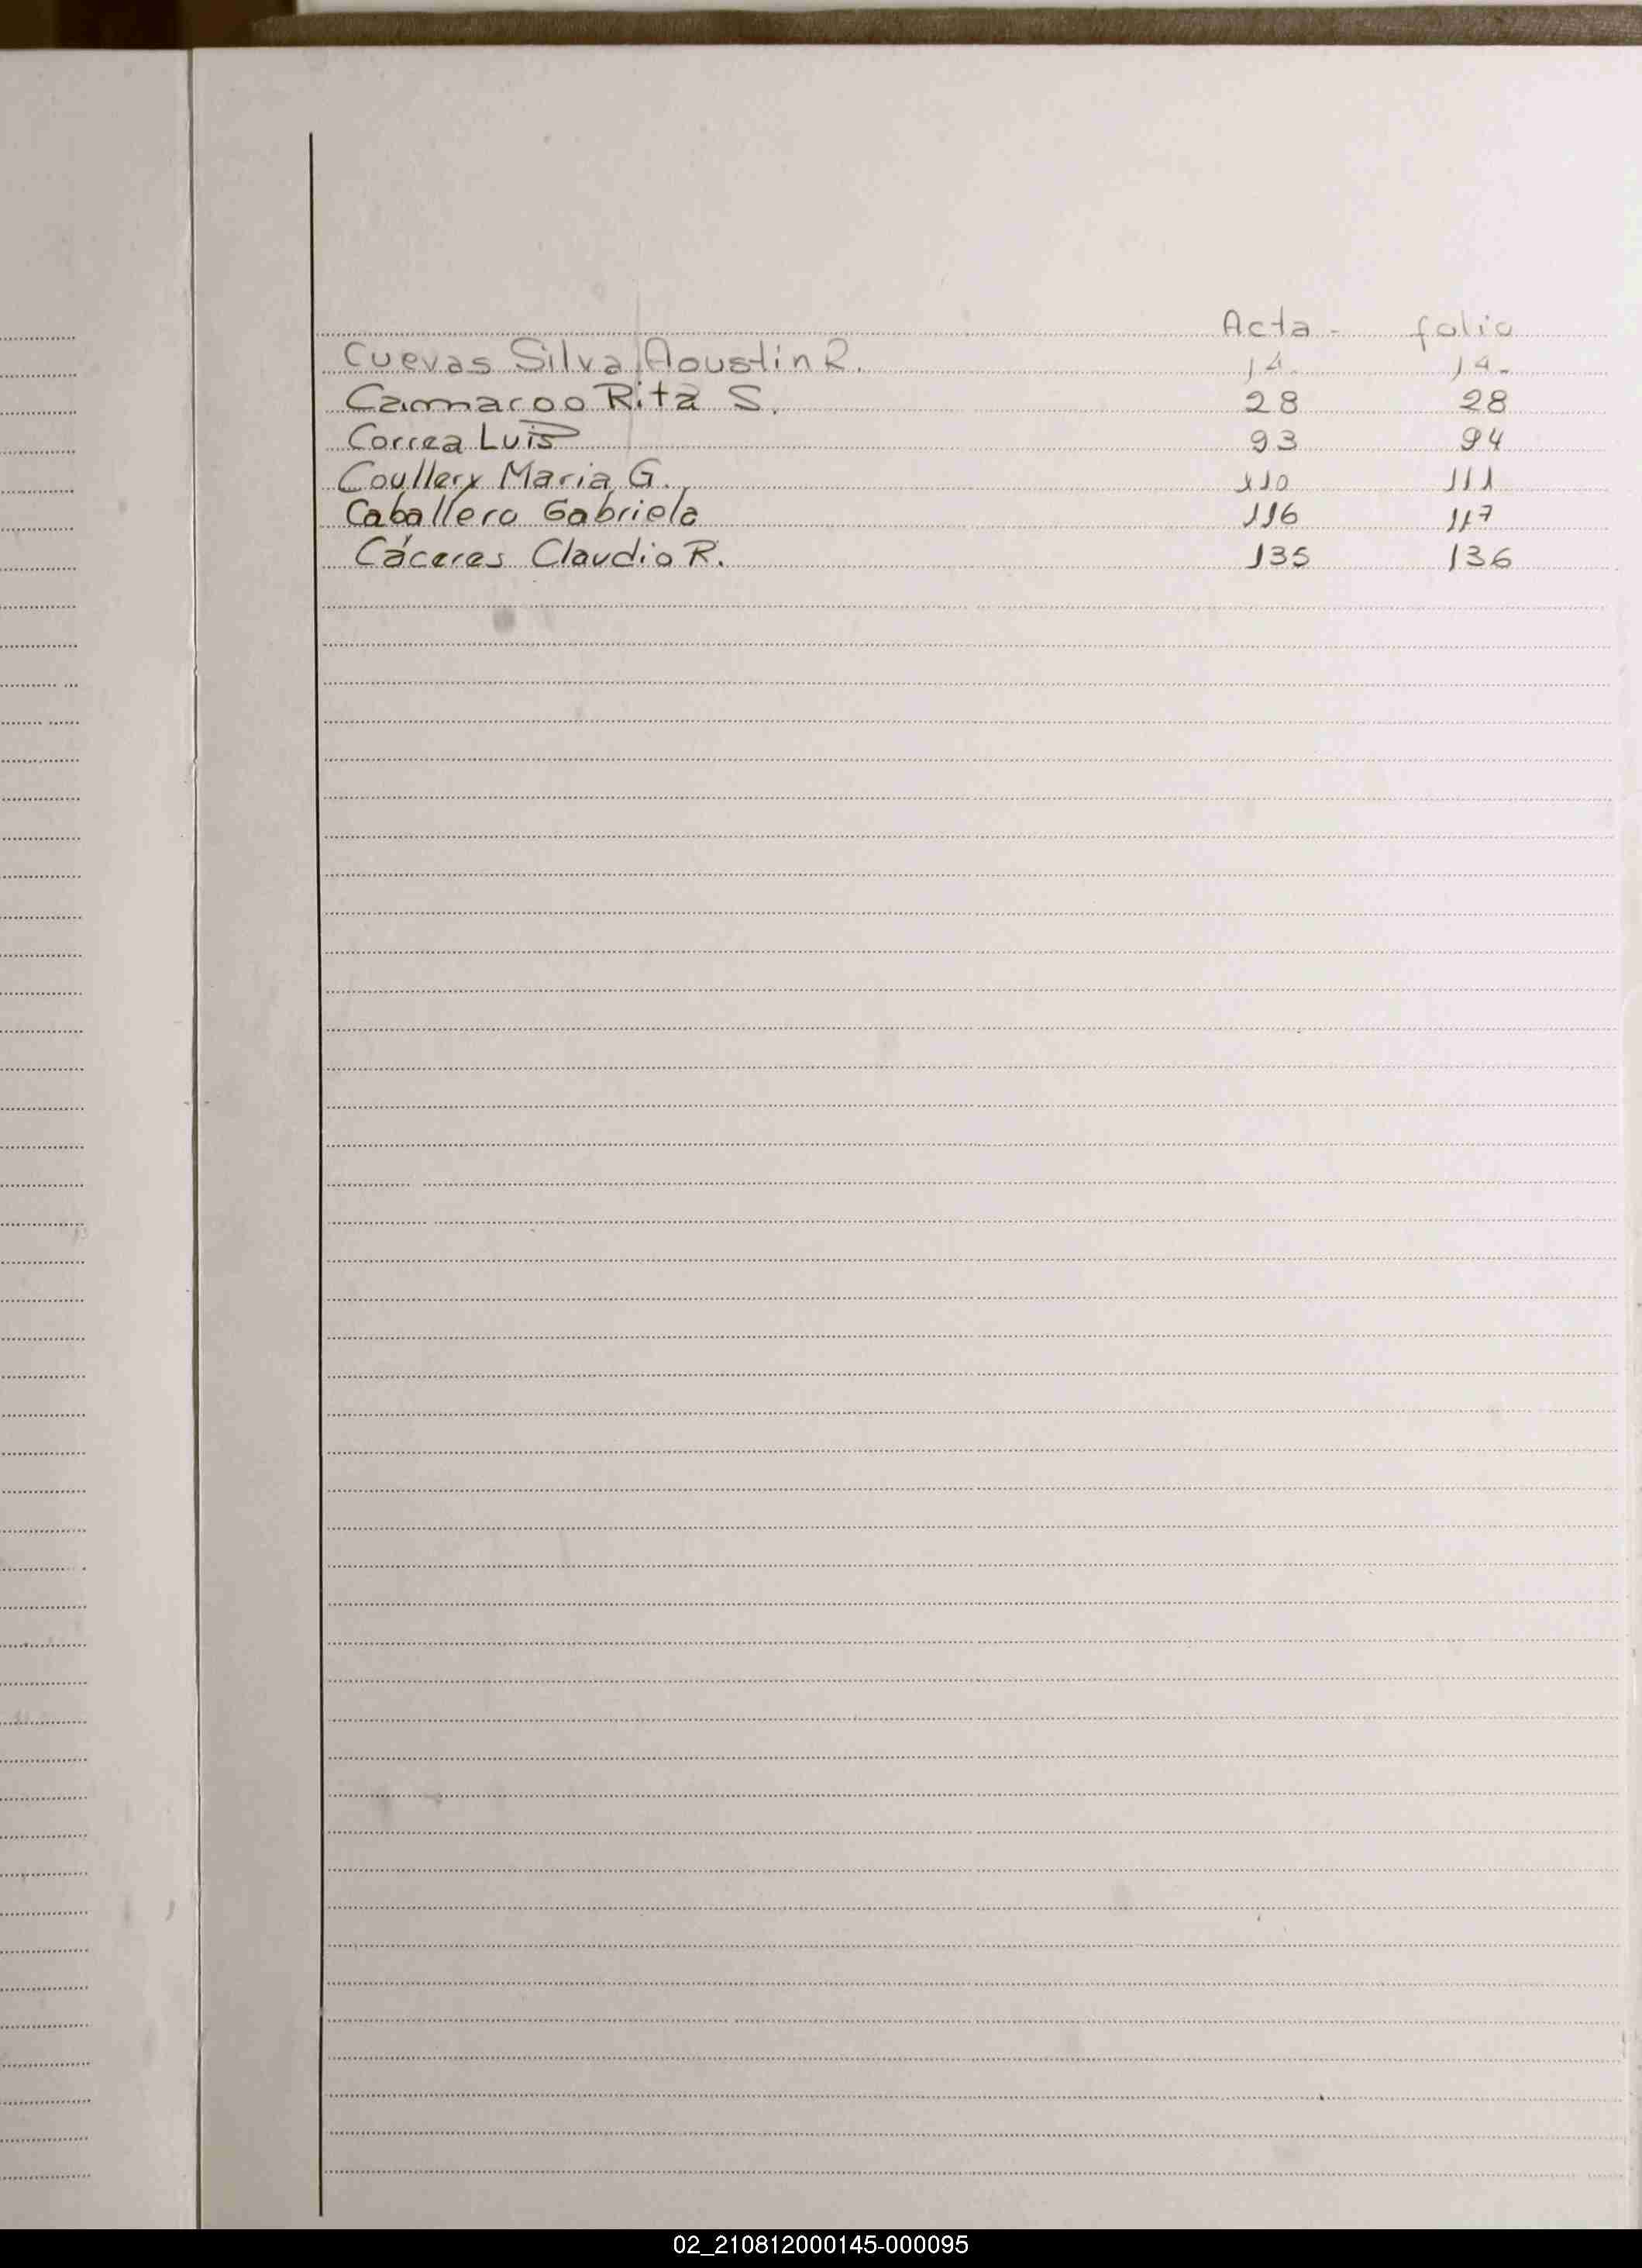 Acta - folio
Cuevas Silva Agustin R. 14. 14.
Cammaroo Rita S. 28 28
Correa Luis 93 94
Coullery Maria G. 110 111
Caballero Gabriela 116 117
Cáceres Claudio R. 135 136
02_210812000145-000095